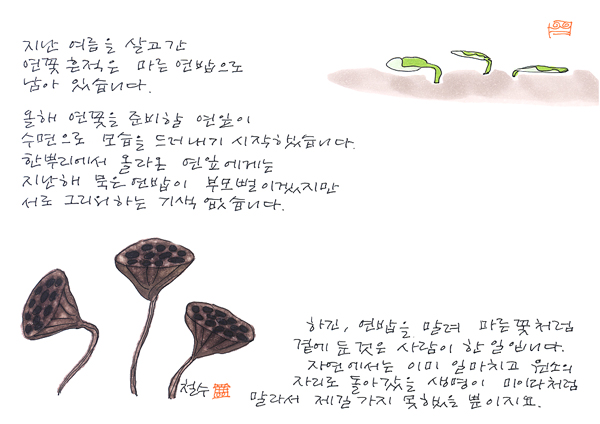 지난 여름을 살고간
연꽃 흔적은 마른 연밥으로
남아 있습니다.
올해 연꽃을 준비할 연잎이
수면으로 모습을 드러내기 시작했습니다.
한뿌리에서 올라온 연잎에게는
지난해 묵은 연밥이 부모뻘이겠지만
서로 그리워하는 기색 없습니다.
하긴, 연밥을 말려 마른꽃처럼
곁에 둔 것은 사람이 한 일입니다.
자연에서는 이미 일마치고 원소의
자리로 돌아갔을 생명이 미이라처럼
말라서 제길 가지 못했을 뿐이지요.
철수